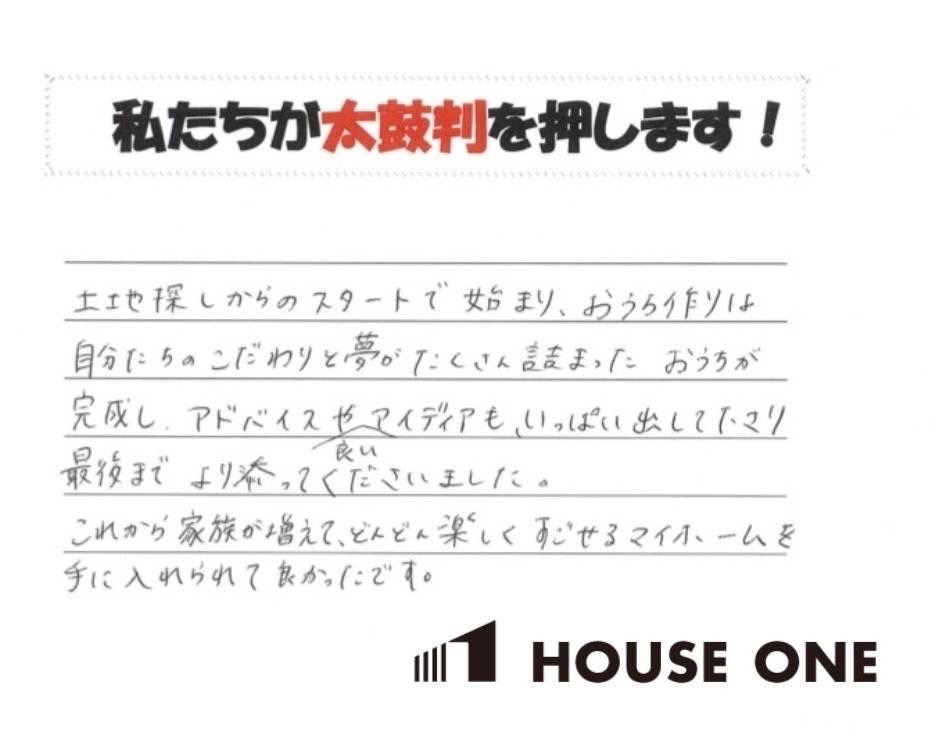 私たちが太鼓判を押します！
土地探しからのスタートで始まり、おうち作りは
自分たちのこだわりと夢がたくさん詰まった おうちが
完成し、アドバイスや良いアイディアも、いっぱい出して下さり
最後まで より添ってくださいました。
これから家族が増えて、どんどん楽しくすごせるマイホームを
手に入れられて良かったです。
HOUSE ONE